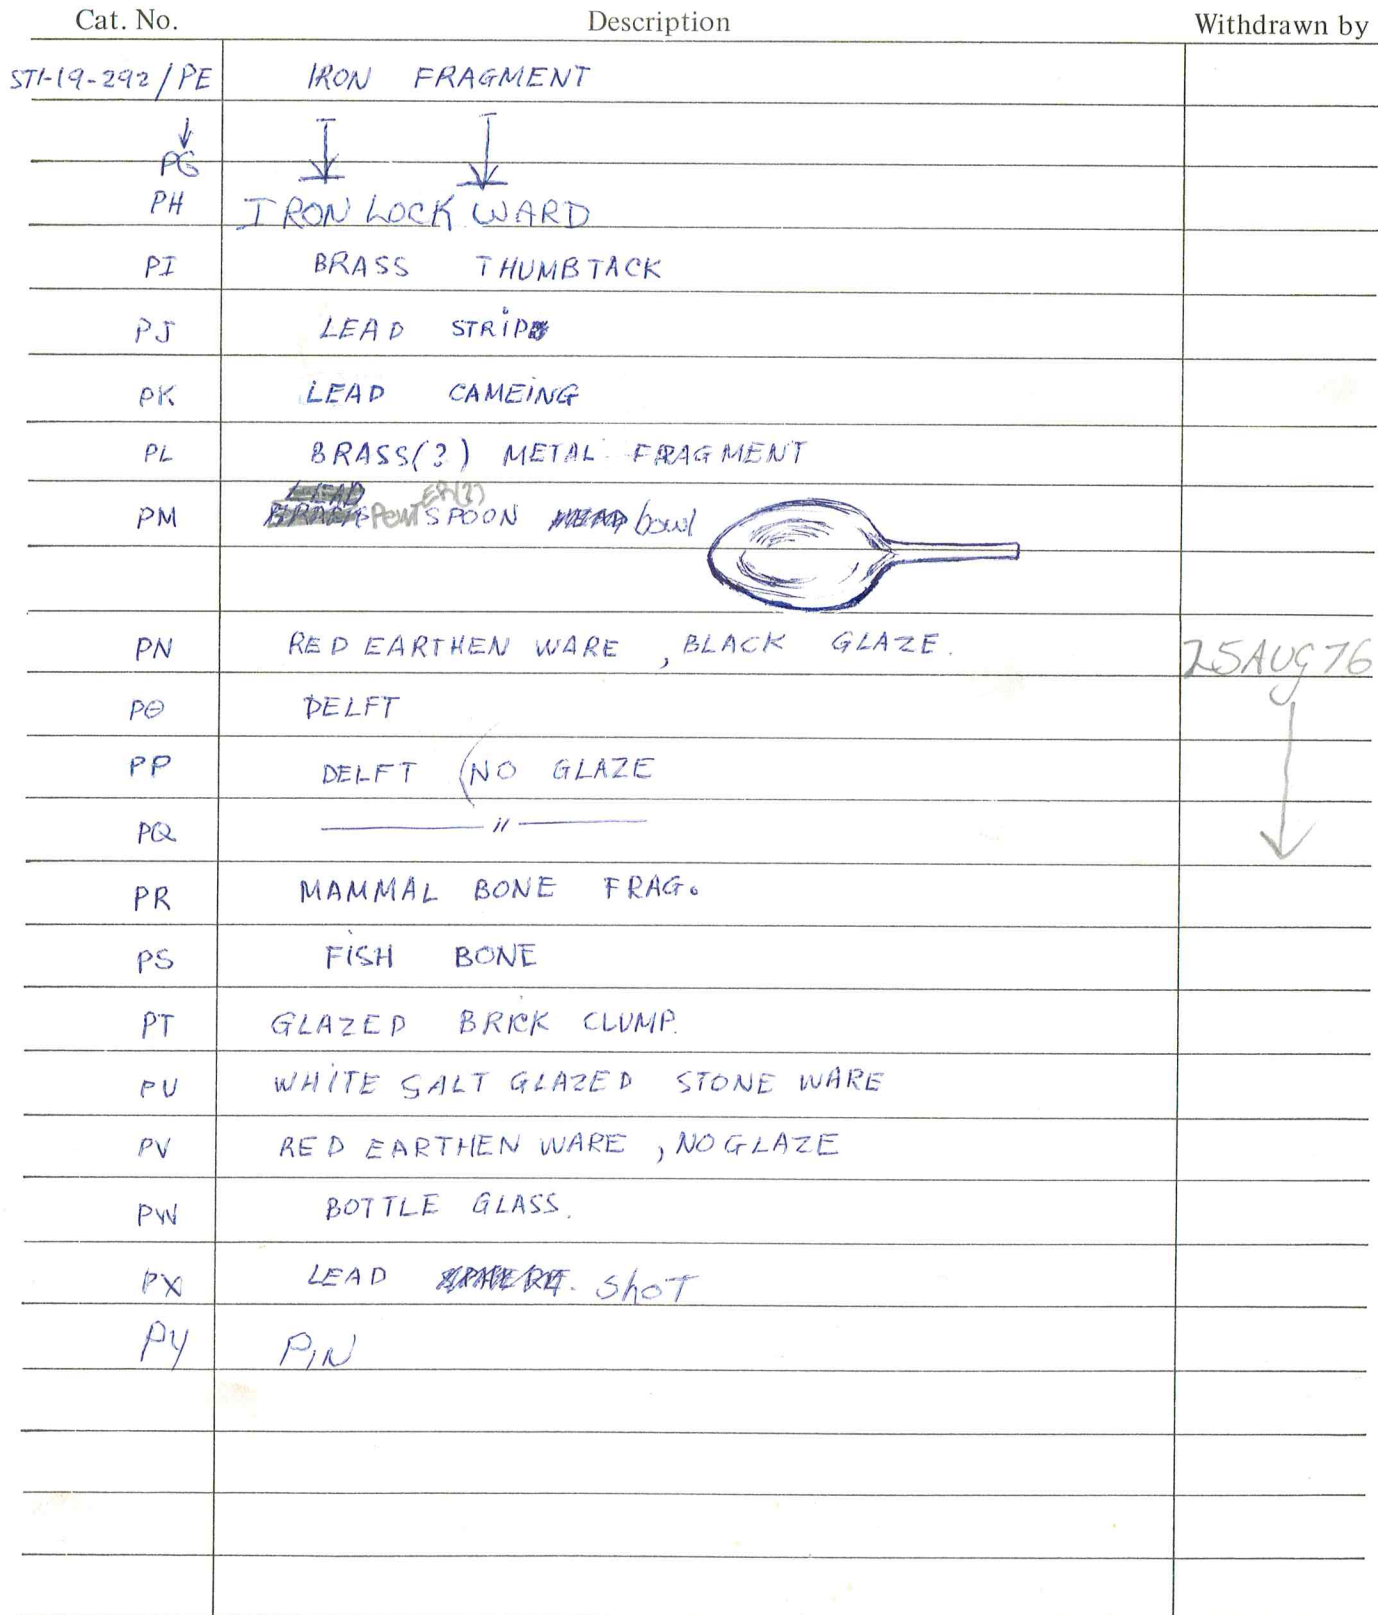 Cat. No. Description Withdrawn by
ST1-19-292/PE IRON FRAGMENT
↓
PG
PH IRON LOCK WARD
PI BRASS THUMBTACK
PJ LEAD STRIP
PK LEAD CAMEING
PL BRASS(?) METAL FRAGMENT
LEAD ER(?)
PM PEWT SPOON bowl
PN RED EARTHEN WARE , BLACK GLAZE. 25AUG76
PO DELFT
PP DELFT (NO GLAZE
PQ —— " ——
PR MAMMAL BONE FRAG.
PS FISH BONE
PT GLAZED BRICK CLUMP.
PU WHITE SALT GLAZED STONE WARE
PV RED EARTHEN WARE , NO GLAZE
PW BOTTLE GLASS.
PX LEAD SPHERE. ShOT
PY PIN